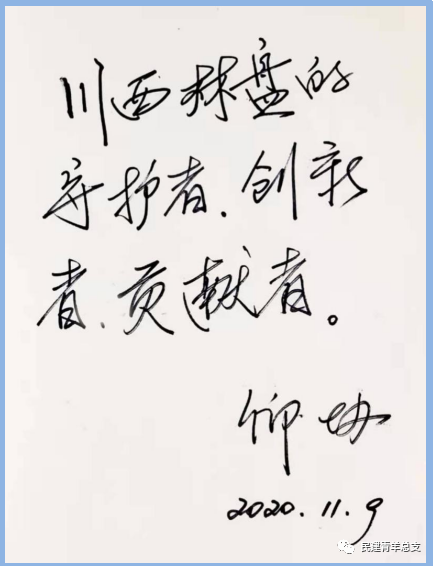 川西林盘的
守护者、创新
者、贡献者。
仰协
2020.11.9
民建青羊总支